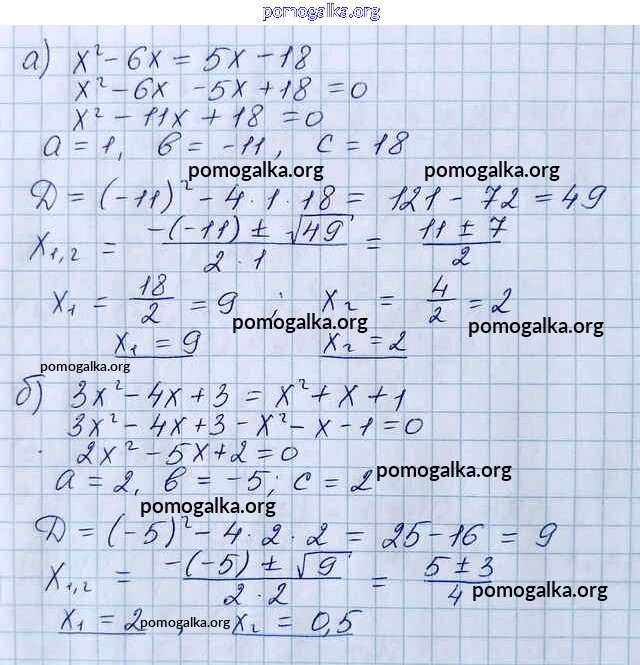 pomogalka.org
а) x² - 6x = 5x - 18
x² - 6x - 5x + 18 = 0
x² - 11x + 18 = 0
a = 1, в = -11, c = 18
pomogalka.org pomogalka.org
Д = (-11)² - 4 · 1 · 18 = 121 - 72 = 49
x₁,₂ = (-(-11) ± √49)/(2 · 1) = (11 ± 7)/2
x₁ = 18/2 = 9 ; x₂ = 4/2 = 2
pomogalka.org pomogalka.org
x₁ = 9 x₂ = 2
pomogalka.org
б) 3x² - 4x + 3 = x² + x + 1
3x² - 4x + 3 - x² - x - 1 = 0
2x² - 5x + 2 = 0
a = 2, в = -5; c = 2
pomogalka.org
pomogalka.org
Д = (-5)² - 4 · 2 · 2 = 25 - 16 = 9
x₁,₂ = (-(-5) ± √9)/(2 · 2) = (5 ± 3)/4
pomogalka.org
x₁ = 2 pomogalka.org x₂ = 0,5